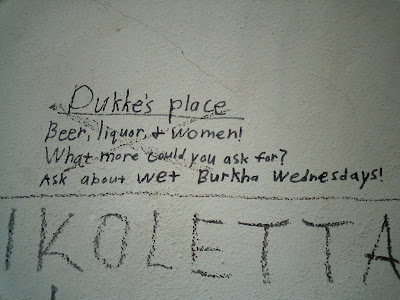 Dukke's place
Beer, liquor, & women!
What more could you ask for?
Ask about wet Burkha Wednesdays!
IKOLETTA